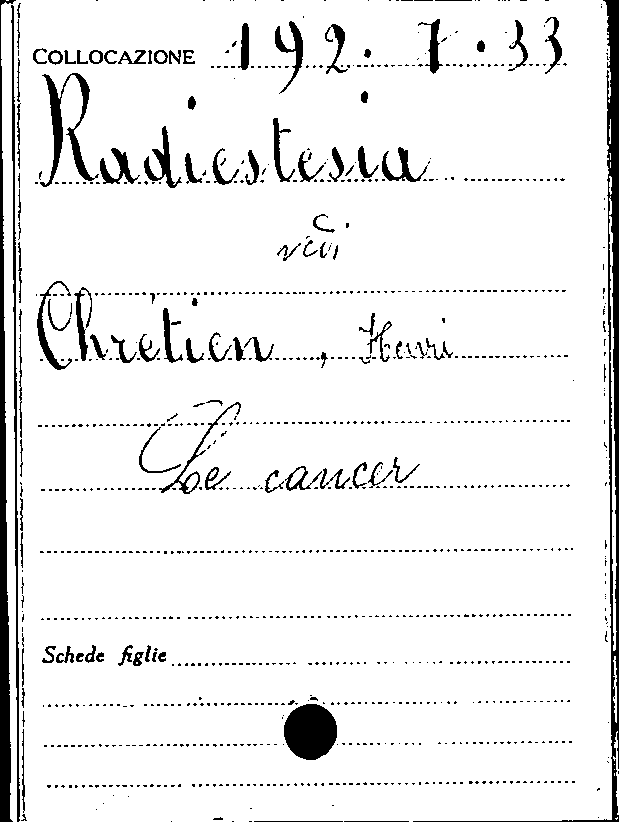 COLLOCAZIONE 192.7.33
Radiestesia
vedi
Chrétien, Henri
Le cancer
Schede figlie